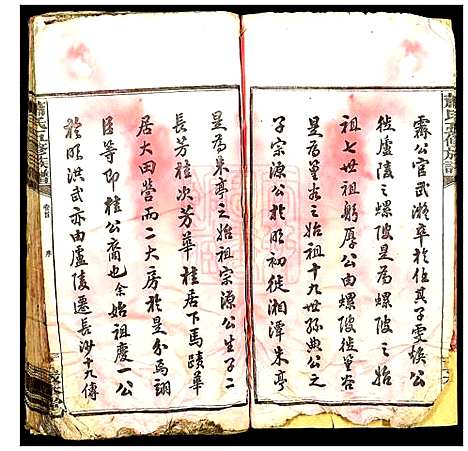 蕭氏五修族譜
霽公官武瀨卒於任其子雯娱公
徙廬陵之螺陂是為螺陂之始
祖七世祖躬厚公由螺陂徙篁谷
是為篁谷之始祖十九世孫典公之
子宗源公於明初徙湘潭朱亭
是為朱亭之始祖宗源公生子二
長芳桂次芳華桂居下馬蹟華
居大田營而二大房於是分焉翮
臣等即桂公裔也余始祖慶一公
於明洪武亦由廬陵遷長沙十九傳
卷首
序